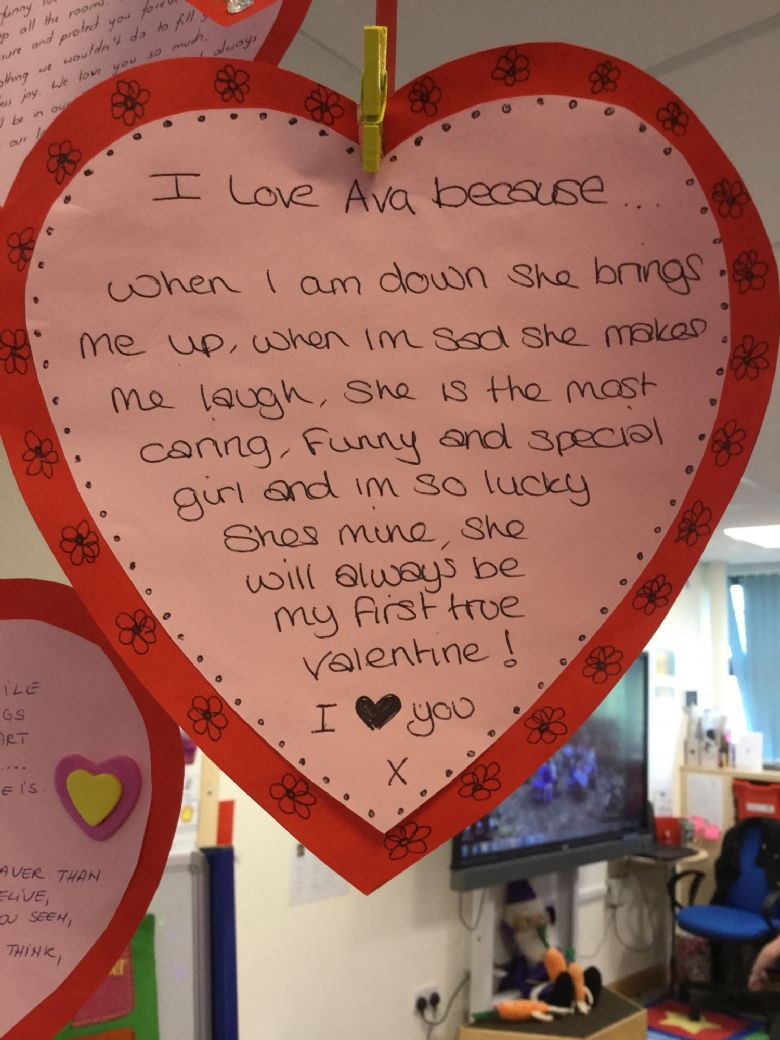 funny
up all the rooms.
sure and protect you forever
nothing we wouldn't do to fill y
ess joy. We love you so much.
always
be in our
our
I Love Ava because...
When I am down she brings
me up, when Im sad she makes
me laugh, she is the most
caring, funny and special
girl and im so lucky
Shes mine, she
will always be
my first true
Valentine!
I ♥ you
X
ILE
GS
ART
....
E IS.
AVER THAN
ELIVE,
OU SEEM,
THINK,